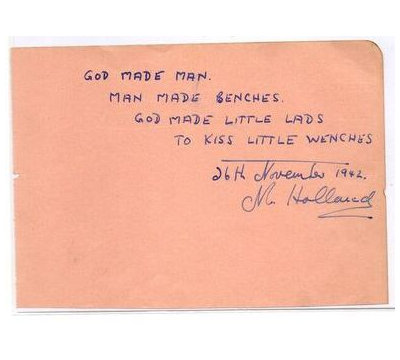 GOD MADE MAN.
MAN MADE BENCHES.
GOD MADE LITTLE LADS
TO KISS LITTLE WENCHES
26th November 1942.
M. Holland